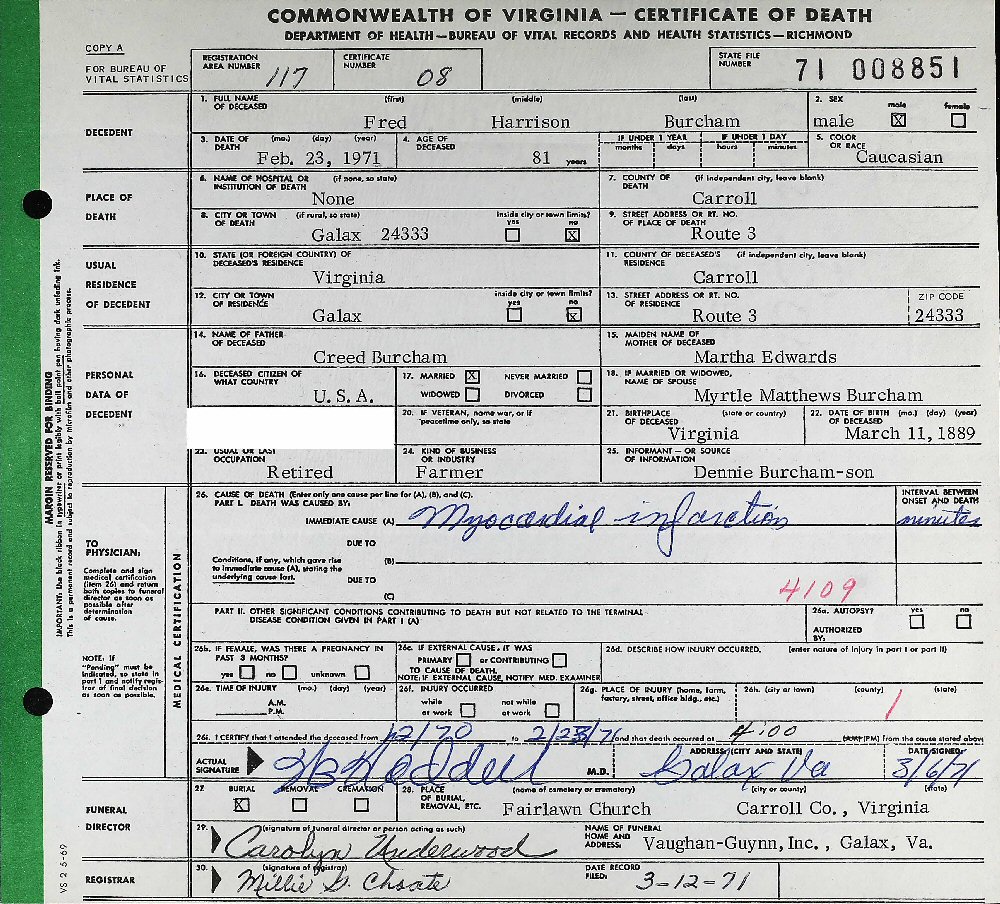 COMMONWEALTH OF VIRGINIA — CERTIFICATE OF DEATH
DEPARTMENT OF HEALTH—BUREAU OF VITAL RECORDS AND HEALTH STATISTICS—RICHMOND
COPY A
FOR BUREAU OF VITAL STATISTICS
REGISTRATION AREA NUMBER 117
CERTIFICATE NUMBER 08
STATE FILE NUMBER 71 008851
DECEDENT
1. FULL NAME OF DECEASED (first) (middle) (last)
Fred Harrison Burcham
2. SEX male female
male ☒ ☐
3. DATE OF DEATH (mo.) (day) (year)
Feb. 23, 1971
4. AGE OF DECEASED
81 years
IF UNDER 1 YEAR months days
IF UNDER 1 DAY hours minutes
5. COLOR OR RACE
Caucasian
PLACE OF DEATH
6. NAME OF HOSPITAL OR INSTITUTION OF DEATH (if none, so state)
None
7. COUNTY OF DEATH (if independent city, leave blank)
Carroll
8. CITY OR TOWN OF DEATH (if rural, so state)
Galax 24333
inside city or town limits? yes ☐ no ☒
9. STREET ADDRESS OR RT. NO. OF PLACE OF DEATH
Route 3
USUAL RESIDENCE OF DECEDENT
10. STATE (OR FOREIGN COUNTRY) OF DECEASED'S RESIDENCE
Virginia
11. COUNTY OF DECEASED'S RESIDENCE (if independent city, leave blank)
Carroll
12. CITY OR TOWN OF RESIDENCE
Galax
inside city or town limits? yes ☐ no ☒
13. STREET ADDRESS OR RT. NO. OF RESIDENCE
Route 3
ZIP CODE
24333
PERSONAL DATA OF DECEDENT
14. NAME OF FATHER OF DECEASED
Creed Burcham
15. MAIDEN NAME OF MOTHER OF DECEASED
Martha Edwards
16. DECEASED CITIZEN OF WHAT COUNTRY
U. S. A.
17. MARRIED ☒ NEVER MARRIED ☐
WIDOWED ☐ DIVORCED ☐
18. IF MARRIED OR WIDOWED, NAME OF SPOUSE
Myrtle Matthews Burcham
20. IF VETERAN, name war, or if peacetime only, so state
21. BIRTHPLACE OF DECEASED (state or country)
Virginia
22. DATE OF BIRTH OF DECEASED (mo.) (day) (year)
March 11, 1889
23. USUAL OR LAST OCCUPATION
Retired
24. KIND OF BUSINESS OR INDUSTRY
Farmer
25. INFORMANT — OR SOURCE OF INFORMATION
Dennie Burcham-son
MARGIN RESERVED FOR BINDING
IMPORTANT: Use black ribbon in typewriter or print legibly with ball point pen having dark unfading ink.
This is a permanent record and subject to reproduction by microfilm and other photographic process.
MEDICAL CERTIFICATION
TO PHYSICIAN:
Complete and sign medical certification (item 26) and return both copies to funeral director as soon as possible after determination of cause.
NOTE: IF "Pending" must be indicated, so state in part I and notify registrar of final decision as soon as possible.
26. CAUSE OF DEATH (Enter only one cause per line for (A), (B), and (C).
PART I. DEATH WAS CAUSED BY:
INTERVAL BETWEEN ONSET AND DEATH
IMMEDIATE CAUSE (A) Myocardial infarction minutes
DUE TO
Conditions, if any, which gave rise to immediate cause (A), stating the underlying cause last.
(B)
DUE TO
(C)
4109
PART II. OTHER SIGNIFICANT CONDITIONS CONTRIBUTING TO DEATH BUT NOT RELATED TO THE TERMINAL DISEASE CONDITION GIVEN IN PART I (A)
26a. AUTOPSY? yes ☐ no ☐
AUTHORIZED BY:
26b. IF FEMALE, WAS THERE A PREGNANCY IN PAST 3 MONTHS?
yes ☐ no ☐ unknown ☐
26c. IF EXTERNAL CAUSE, IT WAS
PRIMARY ☐ or CONTRIBUTING ☐
TO CAUSE OF DEATH.
NOTE: IF EXTERNAL CAUSE, NOTIFY MED. EXAMINER
26d. DESCRIBE HOW INJURY OCCURRED. (enter nature of injury in part I or part II)
26e. TIME OF INJURY (mo.) (day) (year)
A.M.
P.M.
26f. INJURY OCCURRED
while at work ☐ not while at work ☐
26g. PLACE OF INJURY (home, farm, factory, street, office bldg., etc.)
26h. (city or town) (county) (state)
1
26i. I CERTIFY that I attended the deceased from 12/70 to 2/23/71 and that death occurred at 4:00 (PM) from the cause stated above
ACTUAL SIGNATURE
M.D.
ADDRESS: (CITY AND STATE)
Galax Va
DATE SIGNED:
3/6/71
FUNERAL DIRECTOR
27. BURIAL REMOVAL CREMATION
☒ ☐ ☐
28. PLACE OF BURIAL, REMOVAL, ETC. (name of cemetery or crematory) (city or county) (state)
Fairlawn Church Carroll Co., Virginia
29. (signature of funeral director or person acting as such)
Carolyn Underwood
NAME OF FUNERAL HOME AND ADDRESS:
Vaughan-Guynn, Inc., Galax, Va.
REGISTRAR
30. (signature of registrar)
Millie G. Choate
DATE RECORD FILED:
3-12-71
VS 2 5-69